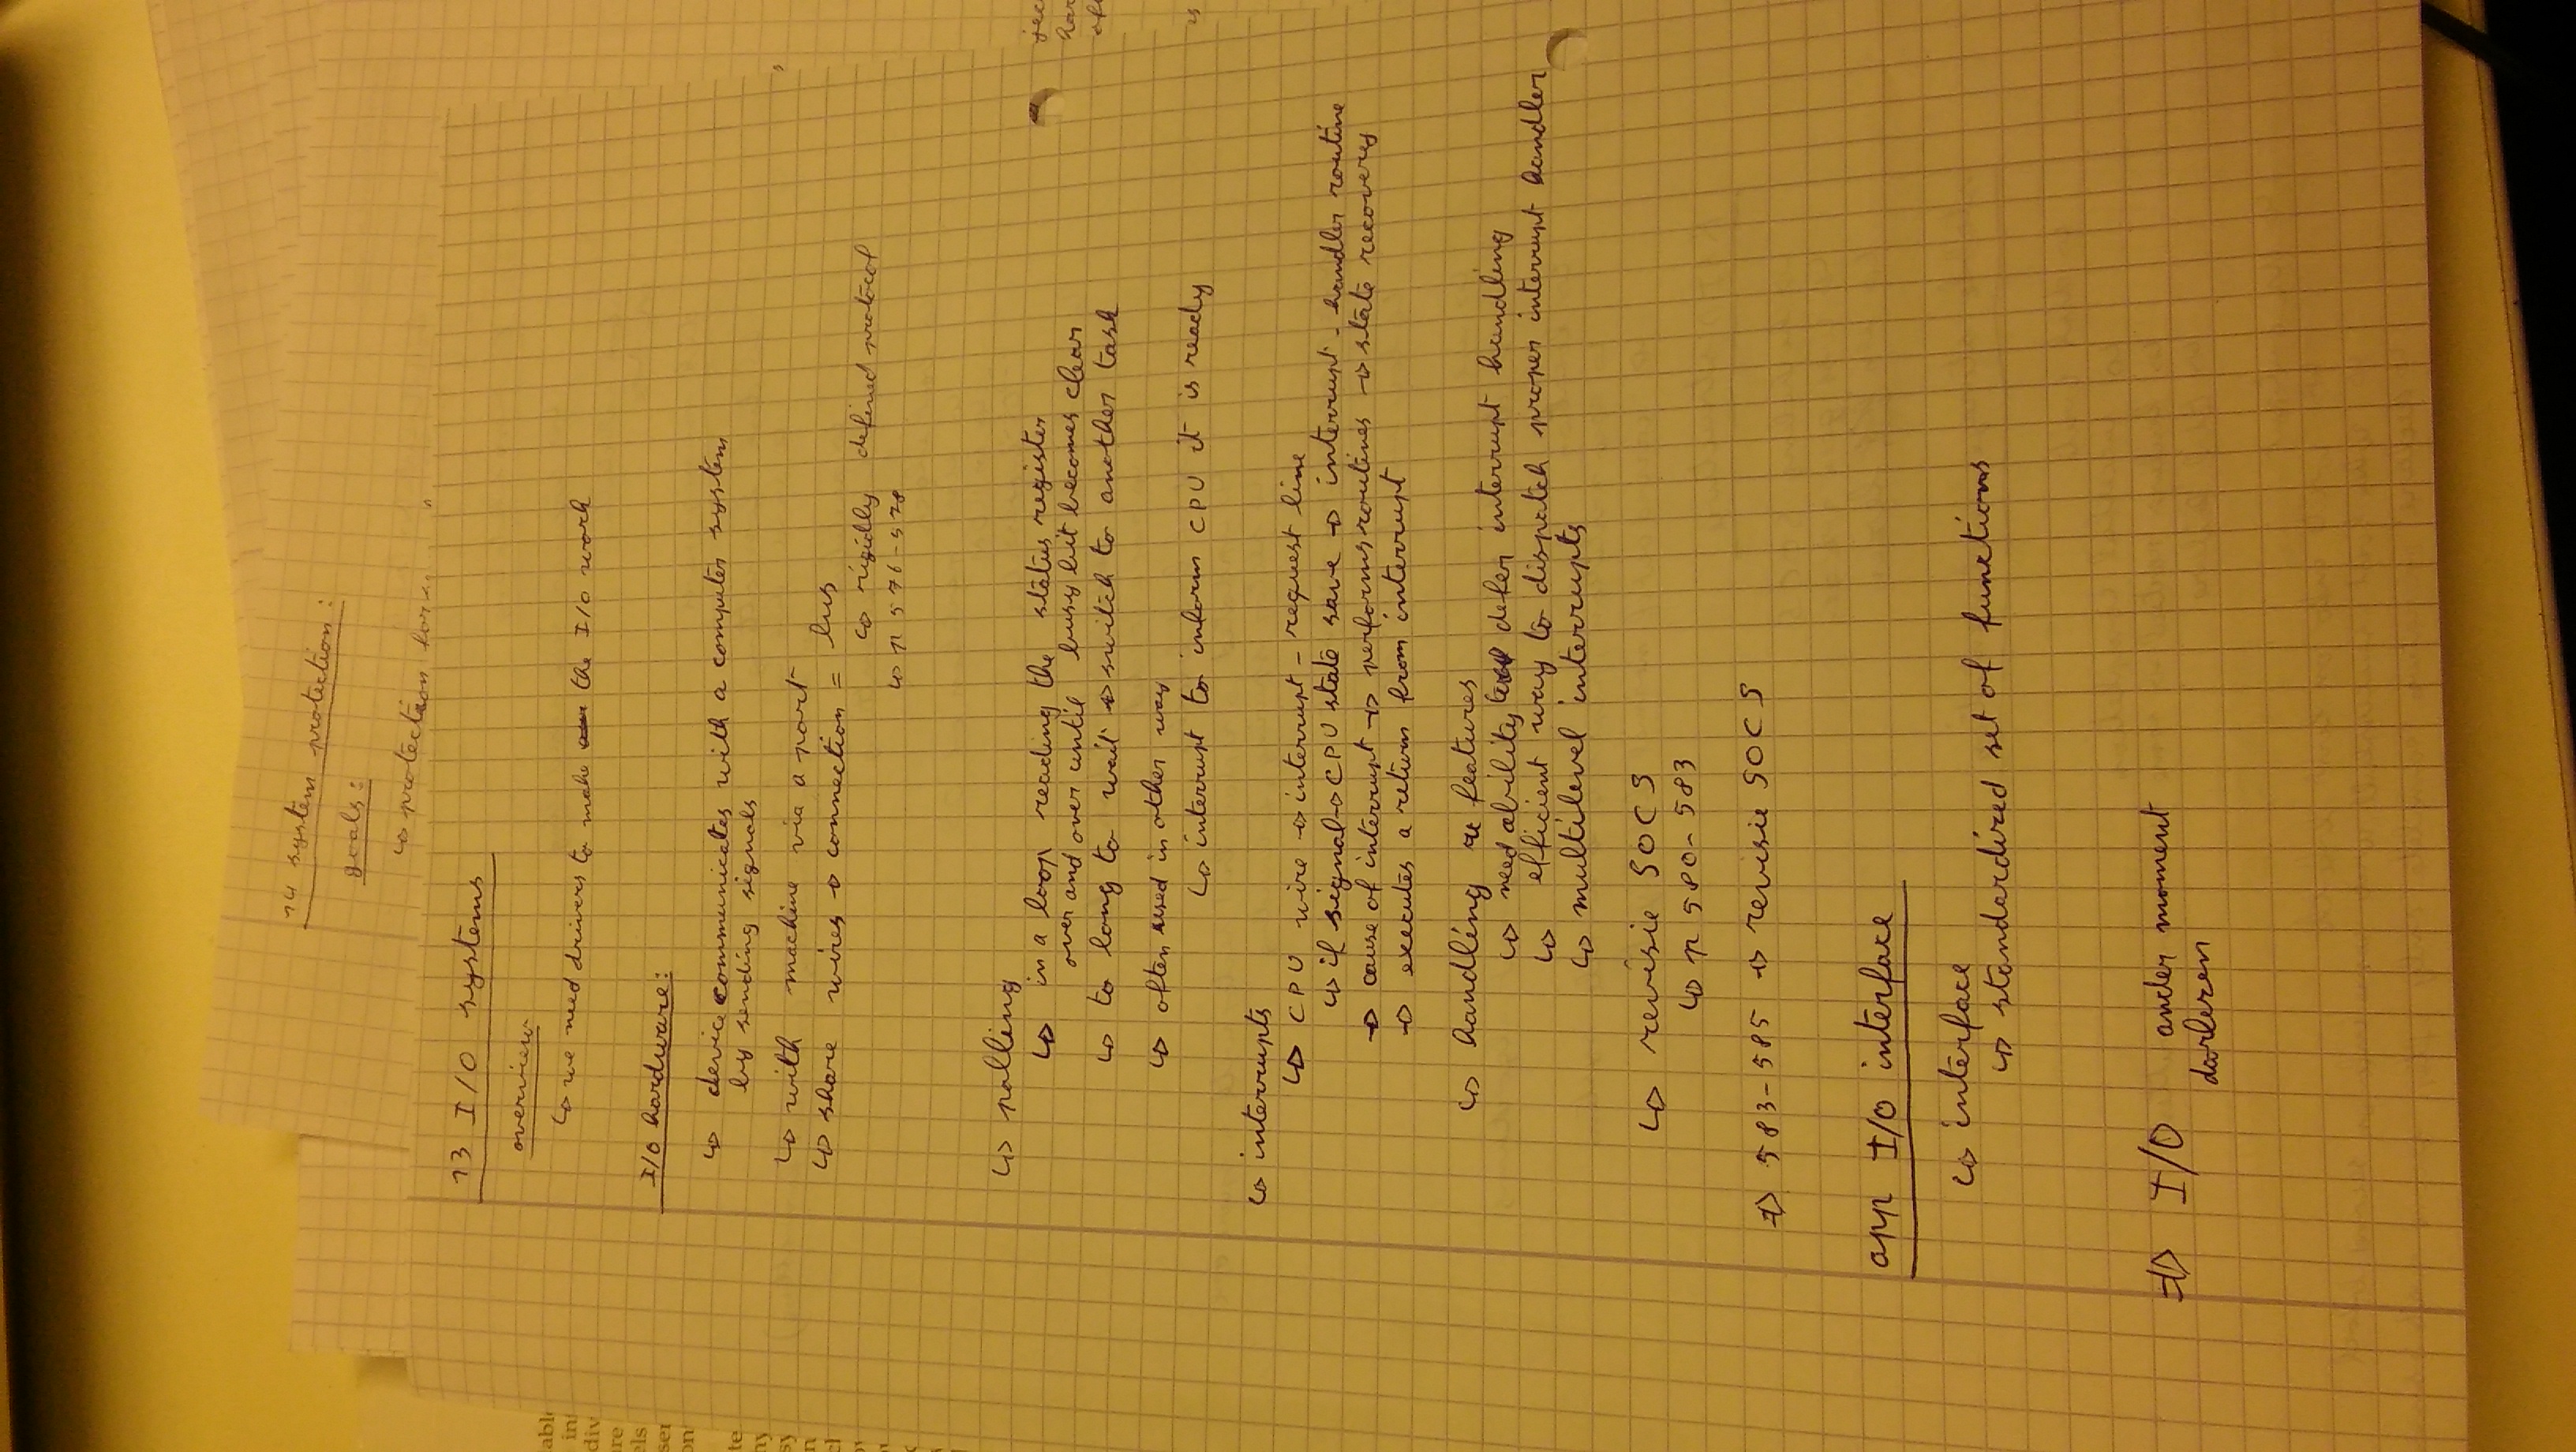 14 system protection:
goals:
↳ protection for
13 I/O systems
overview
↳ we need drivers to make the I/O work
I/O hardware:
↳ device communicates with a computer system
by sending signals
↳ with machine via a port
↳ share wires → connection = bus
↳ rigidly defined protocol
↳ p 576-578
↳ polling
↳ in a loop reading the status register
over and over until busy bit becomes clear
↳ to long to wait → switch to another task
↳ often used in other way
↳ interrupt to inform CPU it is ready
↳ interrupts
↳ CPU wire → interrupt-request line
↳ if signal → CPU state save → interrupt-handler routine
→ cause of interrupt → performs routines → state recovery
→ executes a return from interrupt
↳ handling features
↳ need ability to defer interrupt handling
↳ efficient way to dispatch proper interrupt handler
↳ multilevel interrupts
↳ revisie SOCS
↳ p 580-583
⇒ 583-585 → revisie SOCS
app I/O interface
↳ interface
↳ standardized set of functions
⇒ I/O ander moment
doorlezen